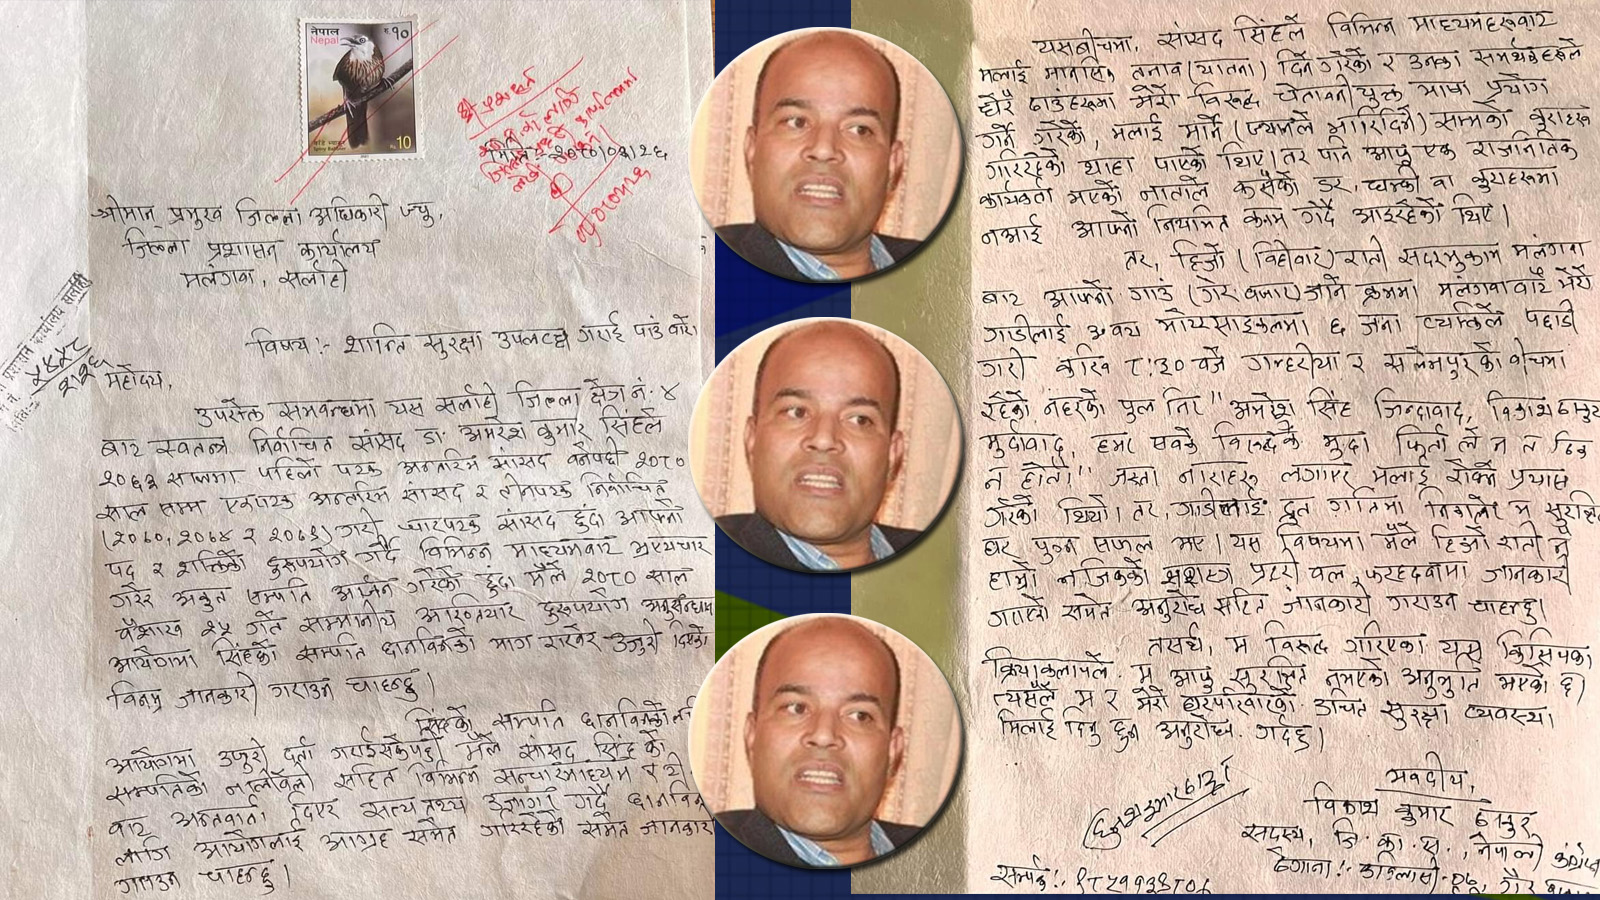 नेपाल
Nepal
रु १०
10
मिति :- २०८०।०२।२६
श्रीमान् प्रमुख जिल्ला अधिकारी ज्यु,
जिल्ला प्रशासन कार्यालय
मलंगवा, सर्लाही
विषय :- शान्ति सुरक्षा उपलब्ध गराई पाउँ बारे।
महोदय,
उपरोक्त सम्बन्धमा यस सर्लाही जिल्ला क्षेत्र नं. ४
बाट स्वतन्त्र निर्वाचित सांसद डा. अमरेश कुमार सिंहले
२०६३ सालमा पहिलो पटक अन्तरिम सांसद बनेपछी २०८०
साल सम्म एकपटक अन्तरिम सांसद र तीनपटक निर्वाचित
गरी चारपटक सांसद हुंदा आफ्नो
पद र शक्तिको दुरुपयोग गर्दै विभिन्न माध्यमबाट भ्रष्टाचार
गरेर अकुत सम्पति आर्जन गरेको हुंदा मैले २०८० साल
बैशाख २५ गते सम्मानीय अख्तियार दुरुपयोग अनुसन्धान
आयोगमा सिंहको सम्पति छानविनको माग राखेर उजुरी दिएको
विनम्र जानकारी गराउन चाहन्छु।
सिंहको सम्पति छानविनको
आयोगमा उजुरी दर्ता गराईसकेपछी मैले सांसद सिंहको
सम्पतिको नालीवेली सहित विभिन्न सन्चारमाध्यम
बाट अन्तवार्ता दिएर सत्य तथ्य उजागर गर्दै छानविन
लागि आयोगलाई आग्रह समेत गरिरहेको समेत जानकारी
गराउन चाहन्छु।
यसबीचमा, सांसद सिंहले विभिन्न माध्यमहरुबाट
मलाई मानसिक तनाव (यातना) दिने गरेको र उनका समर्थकहरुले
धेरै ठाउंहरुमा मेरो विरुद्ध चेतावनीयुक्त भाषा प्रयोग
गर्ने गरेको, मलाई मार्ने (ज्यानले मारिदिने) सम्मको कुराहरु
गरिरहेको थाहा पाएको थिए। तर पनि आफु एक राजनितिक
कार्यकर्ता भएको नाताले कसैको डर, धम्की वा कुराहरुमा
नआई आफ्नो नियमित काम गर्दै आइरहेको थिए।
तर, हिजो (विहीवार) राती सदरमुकाम मलंगवा
बाट आफ्नो गाउं (गोर बजार) जाने क्रममा मलंगवाबाटै मेरो
गाडीलाई ३ वटा मोटरसाइकलमा ६ जना व्यक्तिले पछाडी
गरी करिब ८:३० बजे जन्हरीया र सलेमपुरको बीचमा
रहेको नहरको पुल निर "अमरेश सिंह जिन्दावाद, विकाश ठाकुर
मुर्दावाद, हमर सबके विरुद्धके मुद्दा फिर्ता ले न त ठिक
न होतौ।" जस्ता नाराहरु लगाएर मलाई रोक्ने प्रयास
गरेको थियो। तर, गाडीलाई द्रुत गतिमा निकालेर म सुरक्षित
घर पुग्न सफल भए। यस विषयमा मैले हिजो राती नै
हाम्रो नजिकको सशस्त्र प्रहरी वल, फरहदवामा जानकारी
गराएको समेत अनुरोध सहित जानकारी गराउन चाहन्छु।
तसर्थ, म विरुद्ध गरिएका यस किसिमका
क्रियाकलापले म आफु सुरक्षित नभएको अनुभुति भएको छ।
त्यसैले म र मेरो घरपरिवारको उचित सुरक्षा व्यवस्था
मिलाई दिनु हुन अनुरोध गर्दछु।
भवदीय,
विकाश कुमार ठाकुर
सदस्य, जि. का. स., नेपाली कंग्रेस
ठेगाना :-
सम्पर्क :-